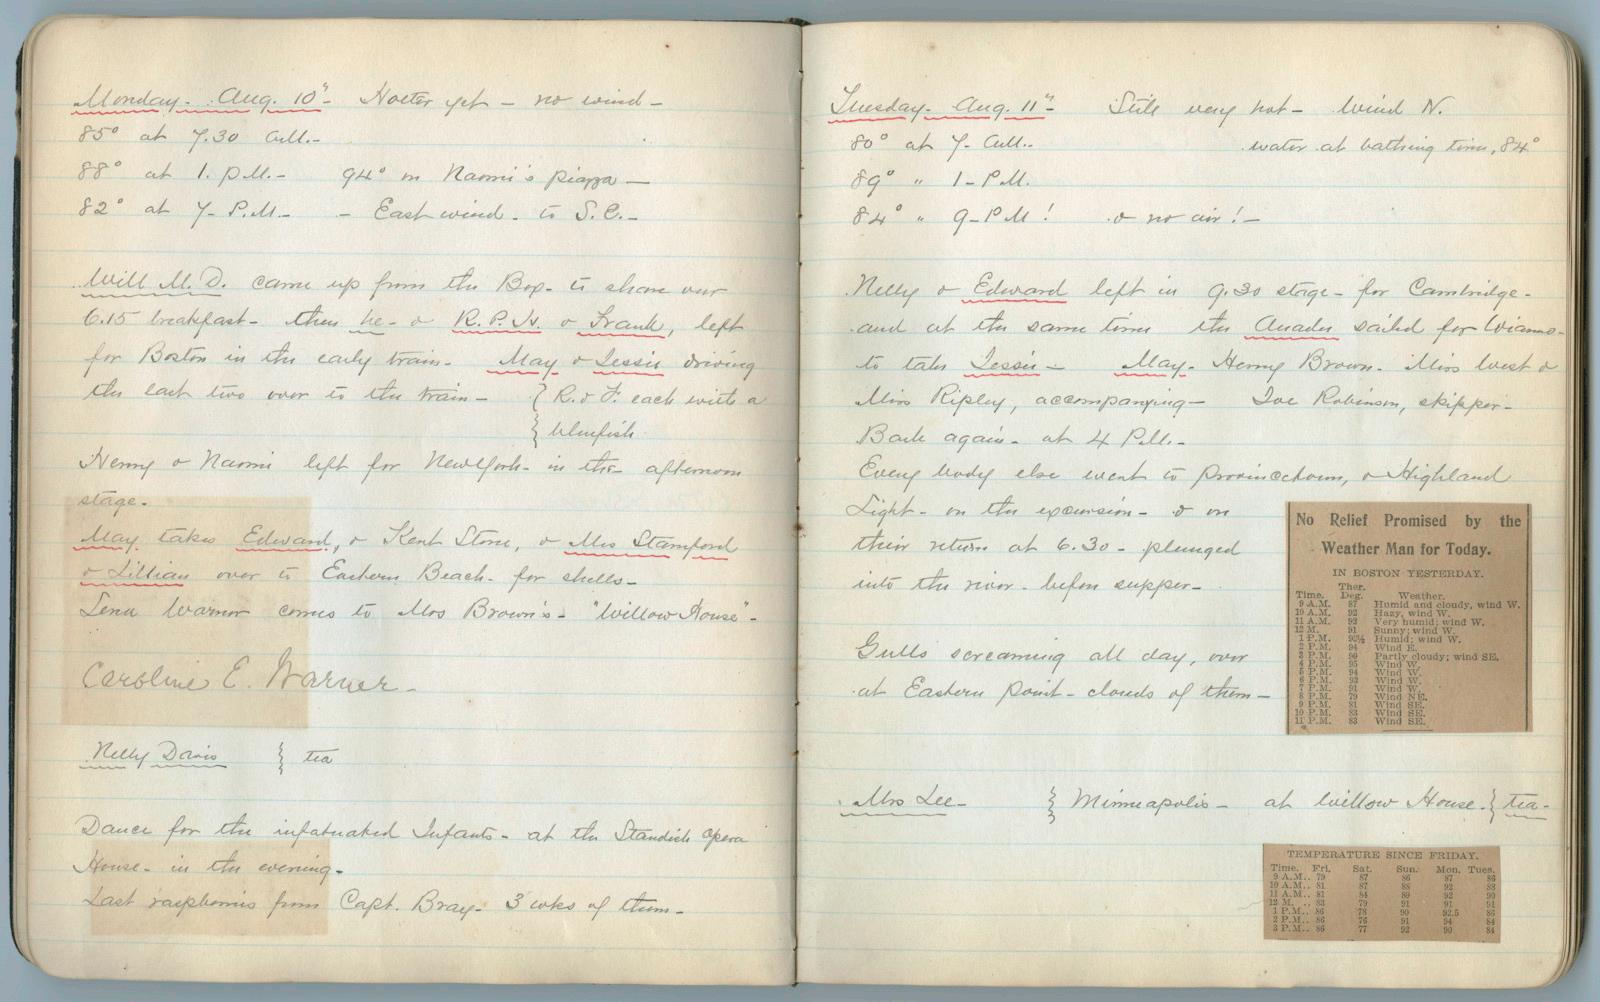 Monday. Aug. 10" - Hotter yet - no wind -
85° at 7.30 A.M. -
88° at 1. P.M. - 94° on Naomi's piazza -
82° at 7 - P.M. - - East wind - to S.E. -
Will M. D. came up from the Box - to share our
6.15 breakfast - then he - & R. P. & Frank, left
for Boston in the early train - May & Jessie driving
the last two over to the train - { R. & F. each with a
{ bluefish.
Henry & Naomi left for New York - in the afternoon
stage -
May takes Edward, & Kent Stone, & Mrs Stamford
& Lillian over to Eastern Beach - for shells -
Lena Warner comes to Mrs Brown's - "Willow House" -
Caroline E. Warner -
Nelly Davis } tea
Dance for the infatuated Infants - at the Standish Opera
House - in the evening -
Last raspberries from Capt. Bray - 3 wks of them -
Tuesday - Aug. 11" - Still very hot - Wind N.
80° at 7 - A.M. - water at bathing time, 84°
89° " 1 - P.M.
84° " 9 - P.M! & no air! -
Nelly & Edward left in 9.30 stage - for Cambridge -
and at the same time the sailed for Wianno -
to take Jessie - May - Henry Brown - Miss West &
Miss Ripley, accompanying - Joe Robinson, skipper -
Back again - at 4 P.M. -
Every body else went to Provincetown, & Highland
Light - on the excursion - & on
their return at 6.30 - plunged
into the river - before supper -
Gulls screaming all day, over
at Eastern Point - clouds of them -
No Relief Promised by the
Weather Man for Today.
IN BOSTON YESTERDAY.
Ther.
Time. Deg. Weather.
9 A.M. 87 Humid and cloudy, wind W.
10 A.M. 92 Hazy, wind W.
11 A.M. 93 Very humid; wind W.
12 M. 91 Sunny; wind W.
1 P.M. 92½ Humid; wind W.
2 P.M. 94 Wind E.
3 P.M. 90 Partly cloudy; wind SE.
4 P.M. 95 Wind W.
5 P.M. 94 Wind W.
6 P.M. 93 Wind W.
7 P.M. 91 Wind W.
8 P.M. 79 Wind NE.
9 P.M. 81 Wind SE.
10 P.M. 83 Wind SE.
11 P.M. 83 Wind SE.
Mrs Lee - } Minneapolis - at Willow House - } tea -
TEMPERATURE SINCE FRIDAY.
Time. Fri. Sat. Sun. Mon. Tues.
9 A.M.. 79 87 86 87 86
10 A.M.. 81 87 88 92 88
11 A.M.. 81 84 89 92 90
12 M. .. 83 79 91 91 91
1 P.M.. 86 78 90 92.5 86
2 P.M.. 86 76 91 94 84
3 P.M.. 86 77 92 90 84